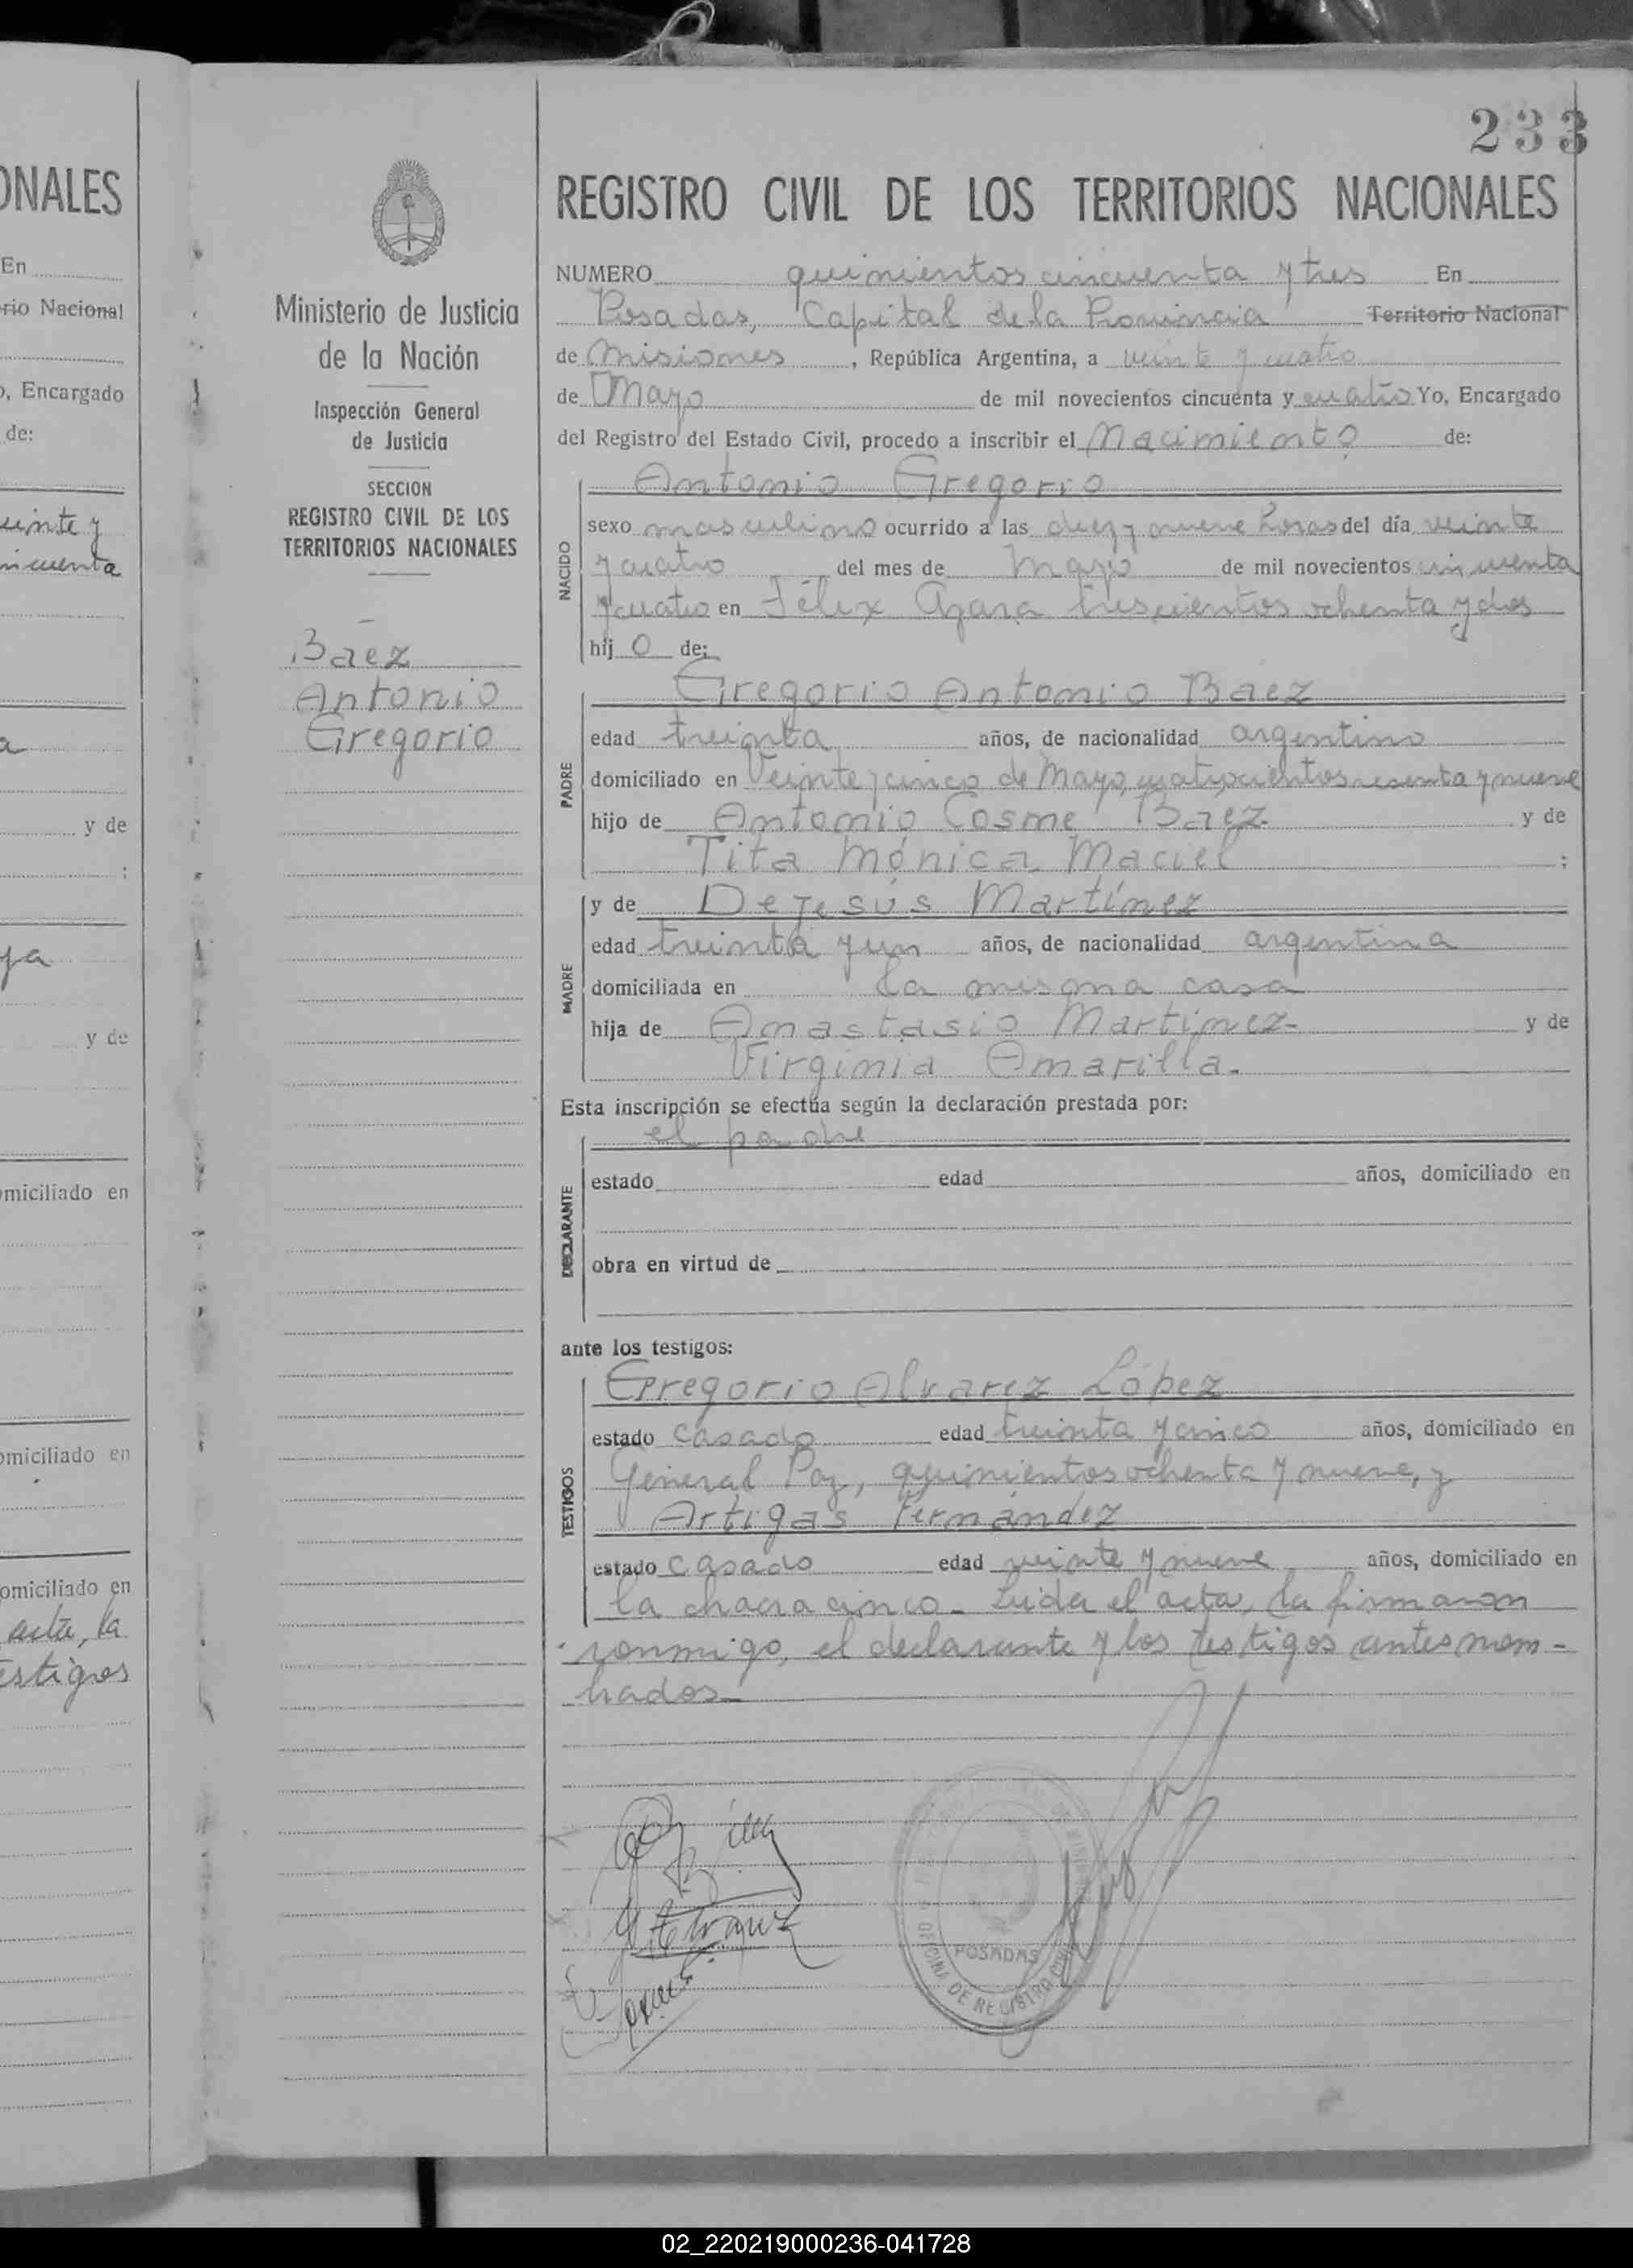 233
ONALES
En
rio Nacional
o, Encargado
de:
einte y
incuenta
a
y de
;
ya
y de
omiciliado en
omiciliado en
omiciliado en
acta, la
estigos
Ministerio de Justicia
de la Nación
Inspección General
de Justicia
SECCION
REGISTRO CIVIL DE LOS
TERRITORIOS NACIONALES
Báez
Antonio
Gregorio
REGISTRO CIVIL DE LOS TERRITORIOS NACIONALES
NUMERO quinientos cincuenta y tres En
Posadas, Capital de la Provincia Territorio Nacional
de Misiones, República Argentina, a veinte y cuatro
de Mayo de mil novecientos cincuenta y cuatro Yo, Encargado
del Registro del Estado Civil, procedo a inscribir el Nacimiento de:
NACIDO
Antonio Gregorio
sexo masculino ocurrido a las diez y nueve horas del día veinte
y cuatro del mes de Mayo de mil novecientos cincuenta
y cuatro en Félix Azara trescientos ochenta y dos
hij o de:
PADRE
Gregorio Antonio Báez
edad treinta años, de nacionalidad argentino
domiciliado en Veinte y cinco de Mayo, cuatrocientos sesenta y nueve
hijo de Antonio Cosme Báez y de
Tita Mónica Maciel ;
MADRE
y de De Jesús Martínez
edad treinta y un años, de nacionalidad argentina
domiciliada en la misma casa
hija de Anastasio Martínez- y de
Virginia Amarilla.
Esta inscripción se efectúa según la declaración prestada por:
DECLARANTE
el padre
estado edad años, domiciliado en
obra en virtud de
ante los testigos:
TESTIGOS
Gregorio Alvarez López
estado casado edad treinta y cinco años, domiciliado en
General Paz, quinientos ochenta y nueve, y
Artigas Fernández
estado casado edad veinte y nueve años, domiciliado en
la chacra cinco- Leída el acta, la firmaron
conmigo, el declarante y los testigos antes nom-
brados-
POSADAS
OFICINA DE REGISTRO
02_220219000236-041728